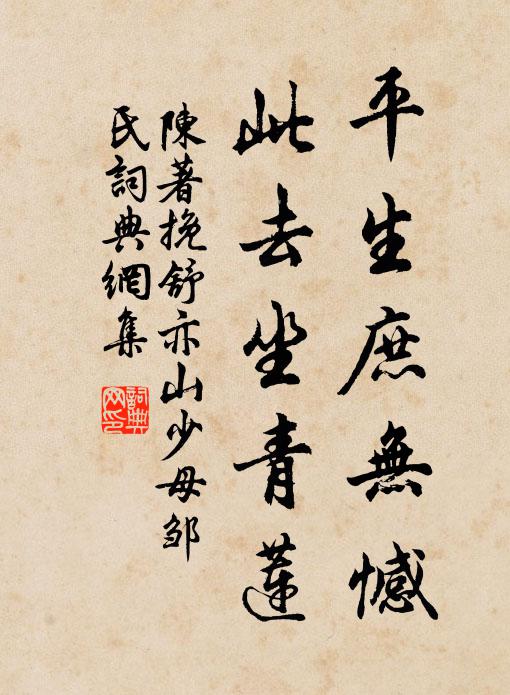 平生庶無憾
此去坐青蓮
陳著挽舒亦山少母邹
氏詞典網集
詞典
网印